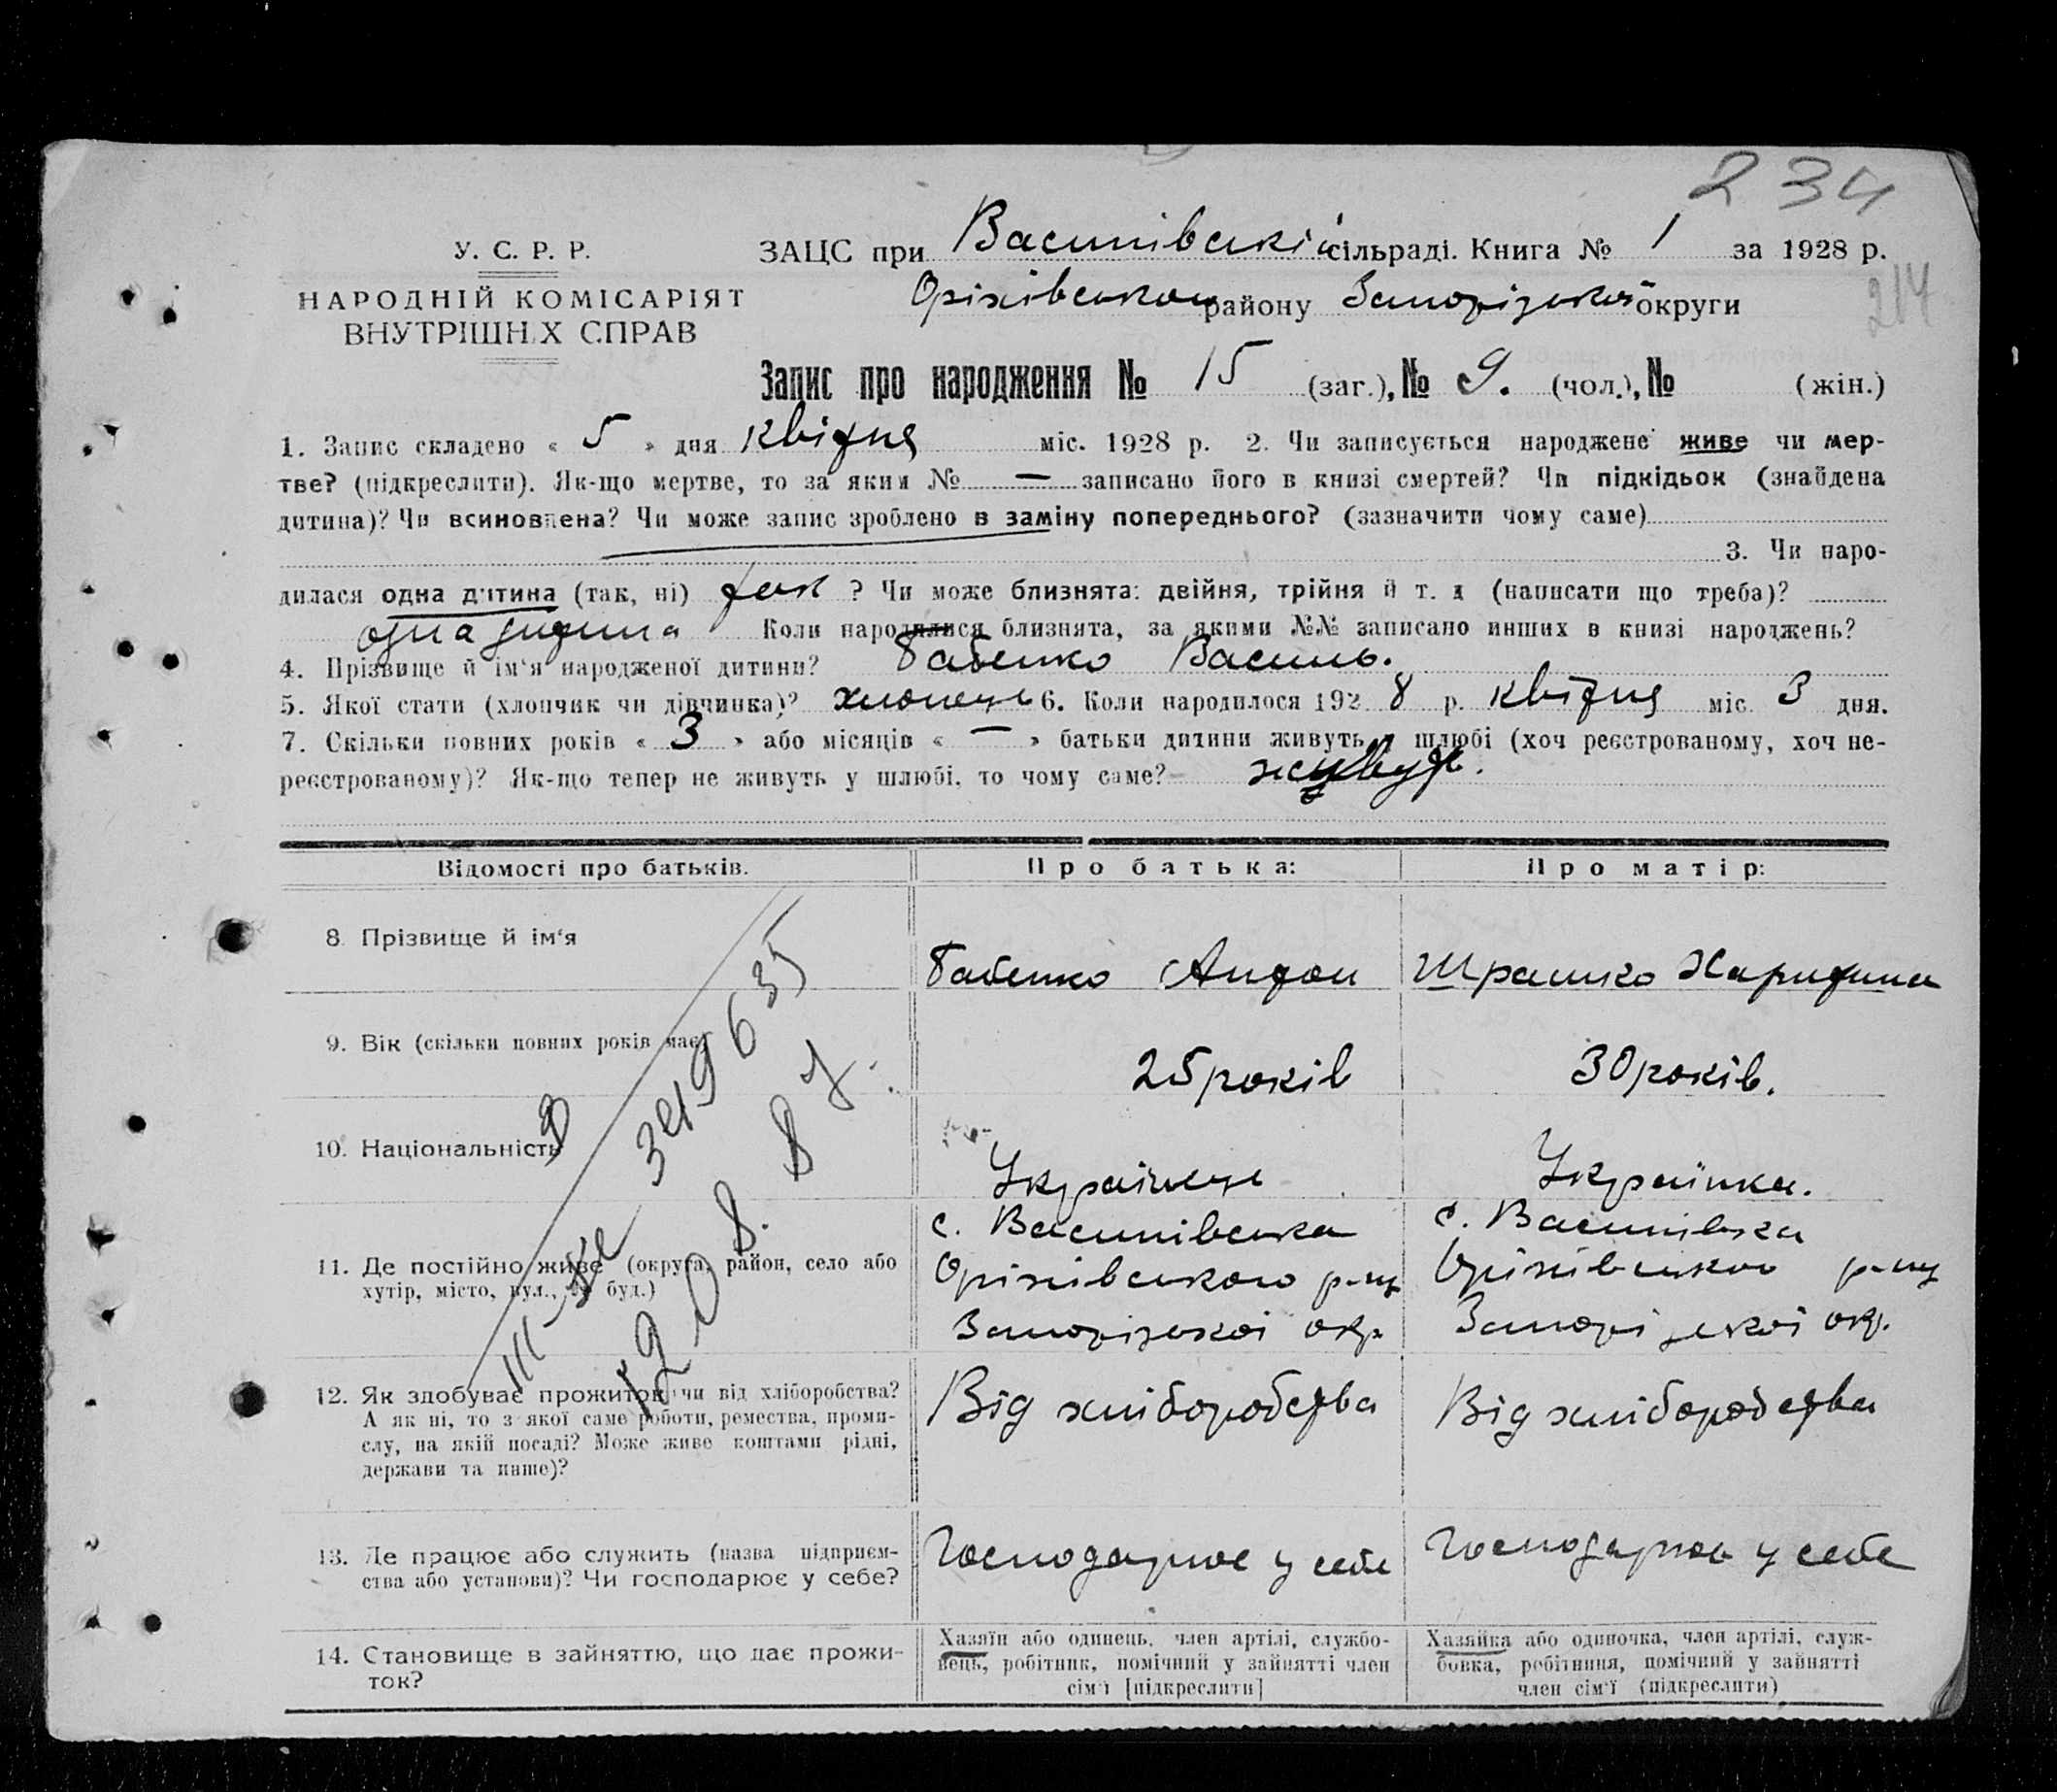 234
У. С. Р. Р.
НАРОДНІЙ КОМІСАРІЯТ
ВНУТРІШНІХ СПРАВ
ЗАЦС при Василівській сільраді. Книга № 1 за 1928 р.
Оріхівського району Запорізької округи
214
Запис про народження № 15 (заг.), № 9. (чол.), № (жін.)
1. Запис складено « 5 » дня квітня міс. 1928 р. 2. Чи записується народжене живе чи мер-
тве? (підкреслити). Як-що мертве, то за яким № — записано його в книзі смертей? Чи підкідьок (знайдена
дитина)? Чи всиновлена? Чи може запис зроблено в заміну попереднього? (зазначити чому саме)
3. Чи наро-
дилася одна дитина (так, ні) так ? Чи може близнята: двійня, трійня й т. д (написати що треба)?
одна дитина Коли народилися близнята, за якими №№ записано инших в книзі народжень?
4. Прізвище й ім'я народженої дитини? Бабенко Василь.
5. Якої стати (хлопчик чи дівчинка)? хлопець 6. Коли народилося 1928 р. квітня міс. 3 дня.
7. Скільки повних років « 3 » або місяців « — » батьки дитини живуть у шлюбі (хоч реєстрованому, хоч не-
реєстрованому)? Як-що тепер не живуть у шлюбі, то чому саме? живуть.
Відомості про батьків. Про батька: Про матір:
8. Прізвище й ім'я Бабенко Антон Шрамко Харитина
9. Вік (скільки повних років має) 25 років 30 років.
10. Національність Українець Українка.
11. Де постійно живе (округа, район, село або
хутір, місто, вул., № буд.)
с. Василівська
Оріхівського р-ну
Запорізької окр.
с. Василівка
Оріхівського р-ну
Запорізької окр.
12. Як здобуває прожиток: чи від хліборобства?
А як ні, то з якої саме роботи, ремества, проми-
слу, на якій посаді? Може живе коштами рідні,
держави та инше)?
Від хліборобства
Від хліборобства
13. Де працює або служить (назва підприєм-
ства або установи)? Чи господарює у себе?
Господарює у себе
Господарює у себе
14. Становище в зайняттю, що дає прожи-
ток?
Хазяїн або одинець, член артілі, службо-
вець, робітник, помічний у зайнятті член
сім'ї [підкреслити]
Хазяйка або одиночка, член артілі, служ-
бовка, робітниця, помічний у зайнятті
член сім'ї (підкреслити)